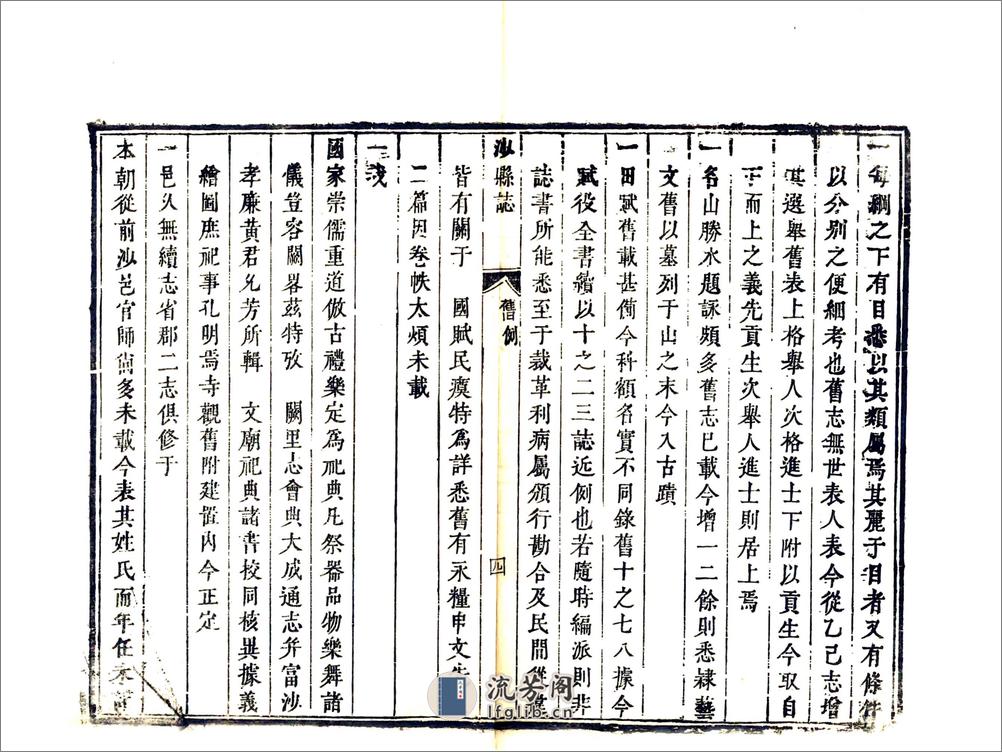 一每綱之下有目悉以其類屬焉其麗于目者又有條件
以分别之便細考也舊志無世表人表今從乙己志增
其選舉舊表上格舉人次格進士下附以貢生今取自
下而上之義先貢生次舉人進士則居上焉
一名山勝水題詠頗多舊志已載今增一二餘則悉隸藝
文舊以墓列于山之末今入古蹟
一田賦舊載甚簡今科額名實不同錄舊十之七八據今
賦役全書續以十之二三誌近例也若隨時編派則非
誌書所能悉至于裁革利病屬頒行勘合及民間
沙縣誌
舊例
四
皆有關于 國賦民瘼特為詳悉舊有永糧申文
二篇因卷帙太煩未載
一
國家崇儒重道倣古禮樂定為祀典凡祭器品物樂舞諸
儀豈容闕畧茲特攷 闕里志會典大成通志并富沙
孝廉黃君允芳所輯 文廟祀典諸書校同核異據義
繪圖庶祀事孔明焉寺觀舊附建置內今正定
一邑乆無續志省郡二志俱修于
本朝從前沙邑官師尚多未載今表其姓氏而年任
流芳阁
lfglib.cn